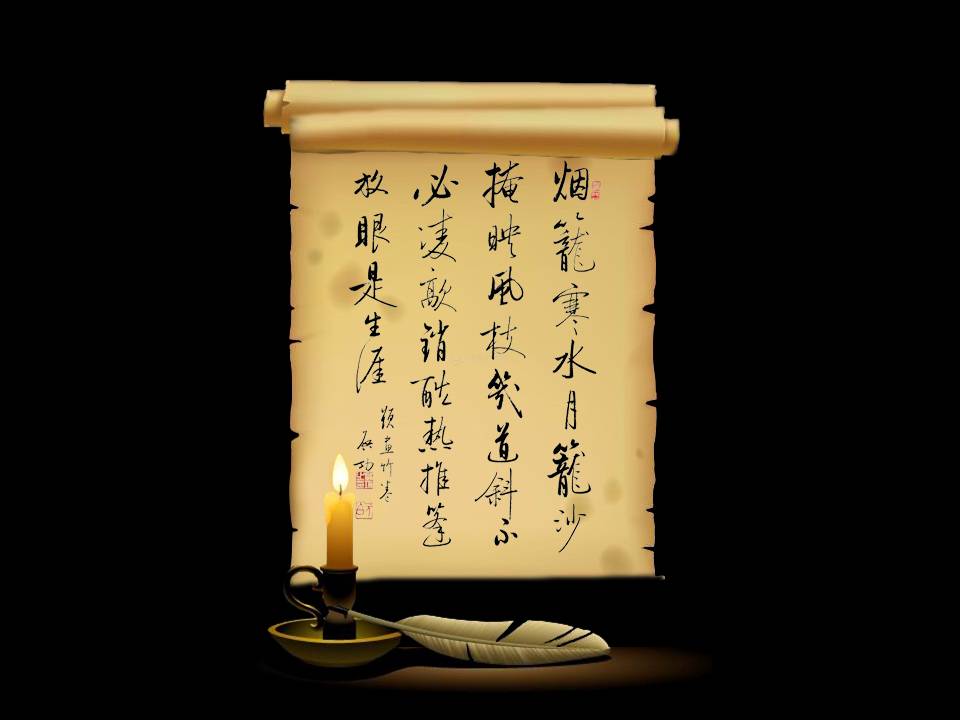 烟籠寒水月籠沙
掩映風枝幾道斜不
必凌歊銷酷熱推篷
放眼是生涯
題畫竹卷
啟功